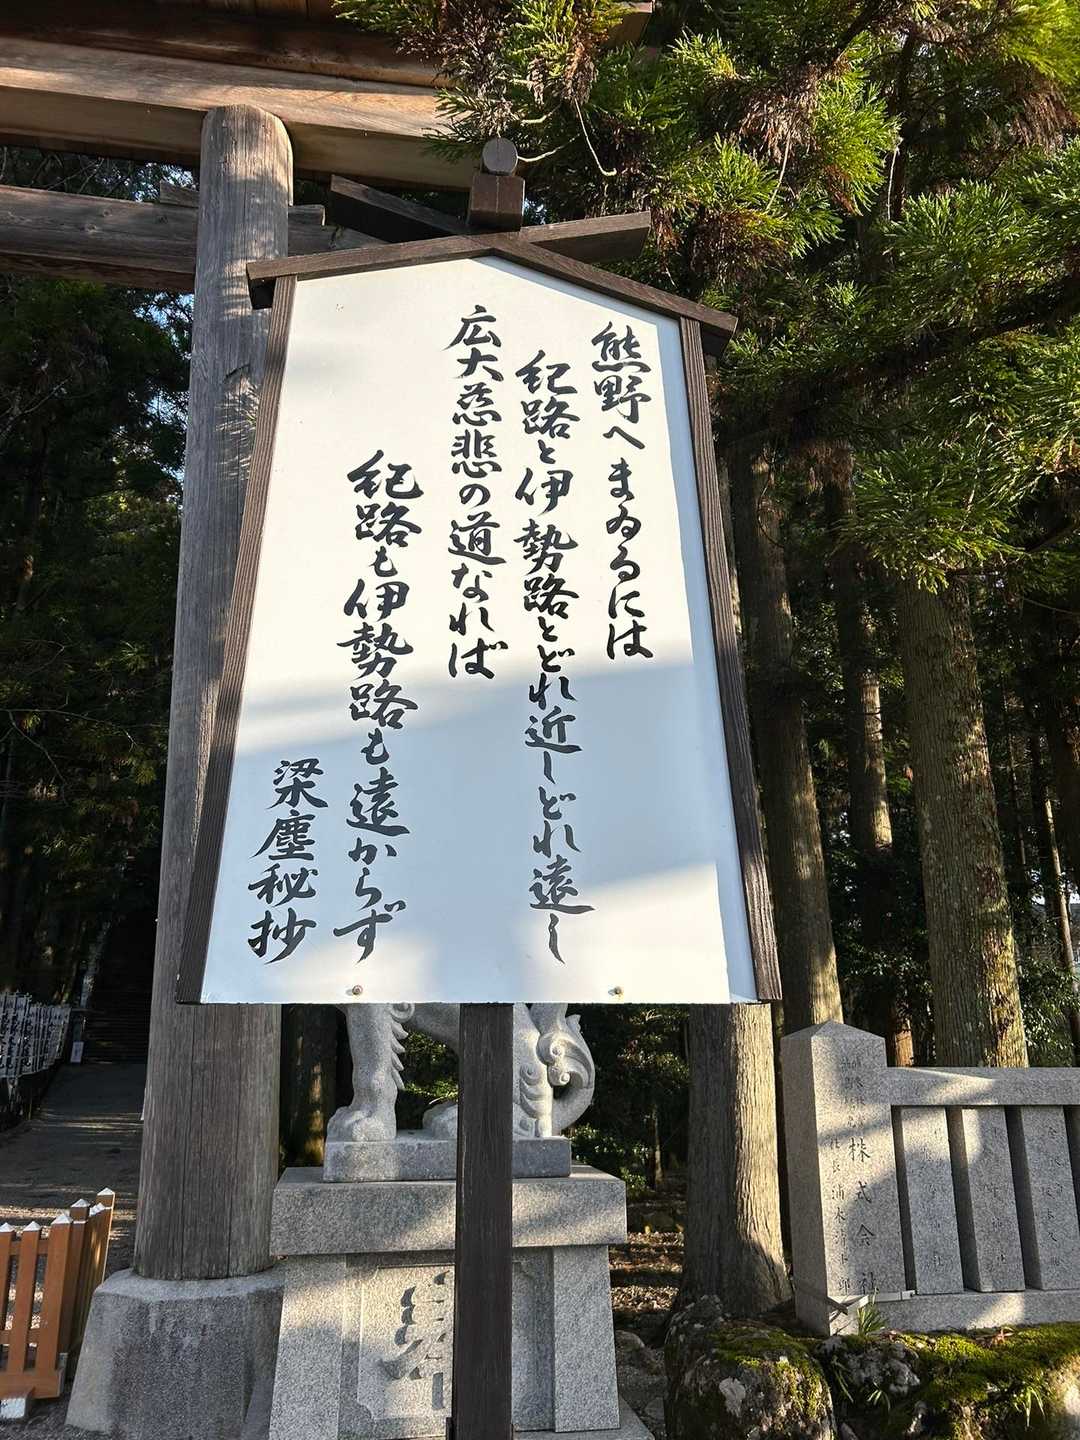 熊野へまゐるには
紀路と伊勢路とどれ近しどれ遠し
広大慈悲の道なれば
紀路も伊勢路も遠からず
梁塵秘抄
株式会社